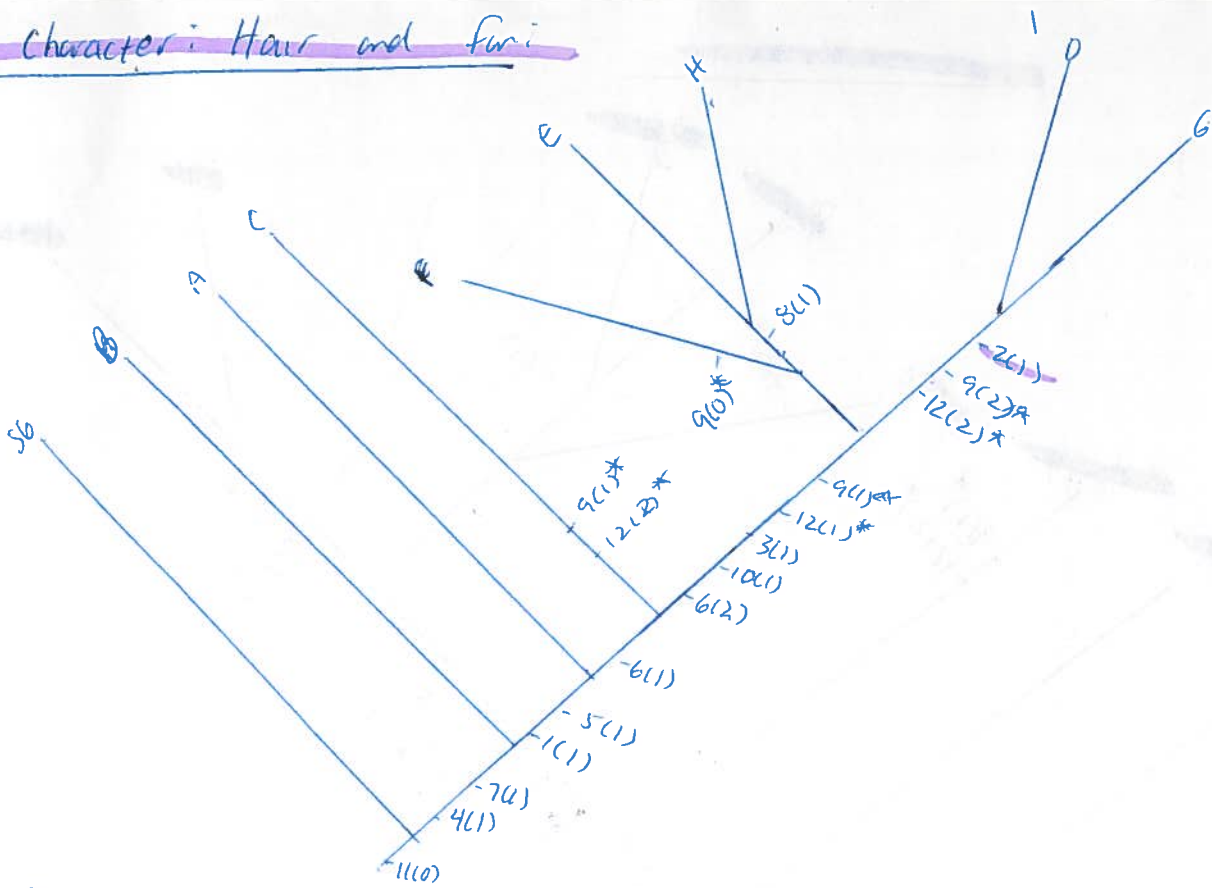 Character: Hair and fur:
1
D
H
G
E
C
A
B
SG
8(1)
9(0)*
-2(1)
-9(2)*
-12(2)*
9(1)*
12(2)*
-9(1)*
-12(1)*
3(1)
-10(1)
-6(2)
-6(1)
-5(1)
-1(1)
-7(1)
4(1)
-11(0)